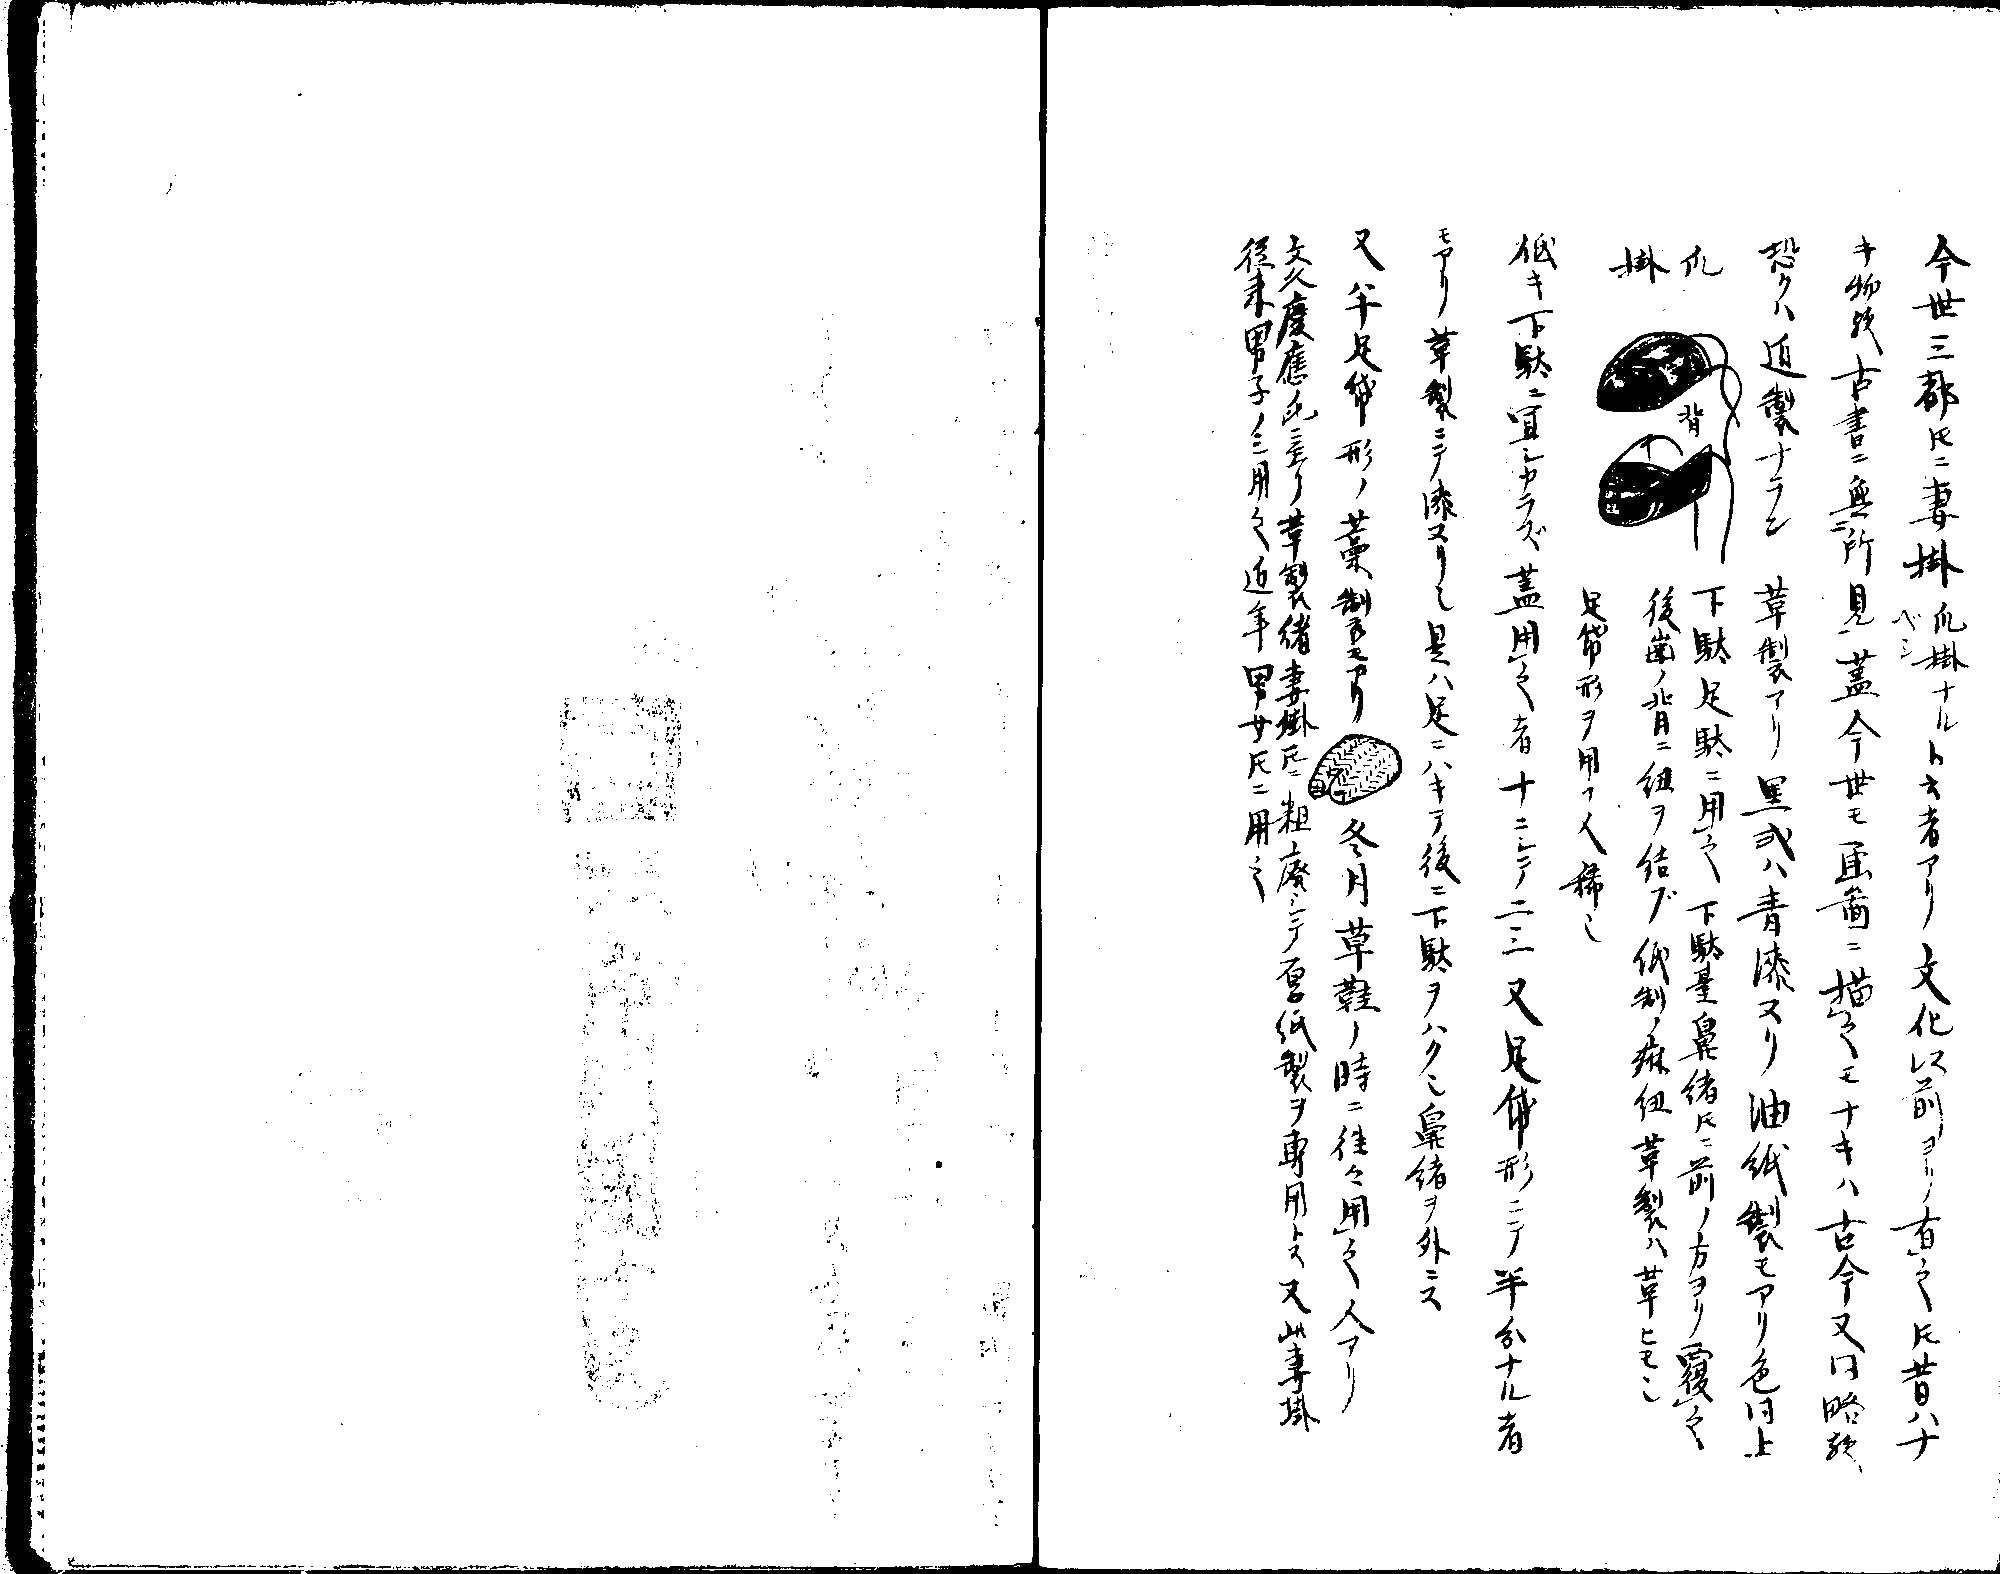 今世三都圧ニ妻掛 爪掛ナルベシ ト云者アリ文化以前ヨリ有之圧昔ハナ
キ物歟古書ニ無所見蓋今世モ画ニ描之モナキハ古今又同略歟
恐クハ近製ナラン 革製アリ黒或ハ青漆ヌリ油紙製モアリ色同上
爪掛
背
下駄足駄ニ用之下駄臺鼻緒圧ニ前ノ方ヨリ覆之
後歯ノ背ニ紐ヲ結ブ紙制ノ麻紐革製ハ革ヒモ也
足袋形ヲ用フ人稀也
低キ下駄ニ宜シカラズ蓋用之者十ニシテ二三又足袋形ニテ半分ナル者
モアリ革製ニテ漆ヌリ也是ハ足ニハキテ後ニ下駄ヲハク也鼻緒ヲ外ニス
又半足袋形ノ藁制モアリ 冬月草鞋ノ時ニ往々用之人アリ
文久慶應ニ至リ革製緒妻掛圧ニ粗廃シテ厚紙製ヲ専用トス又此妻掛
従来男子ノミ用之近年男女圧ニ用之